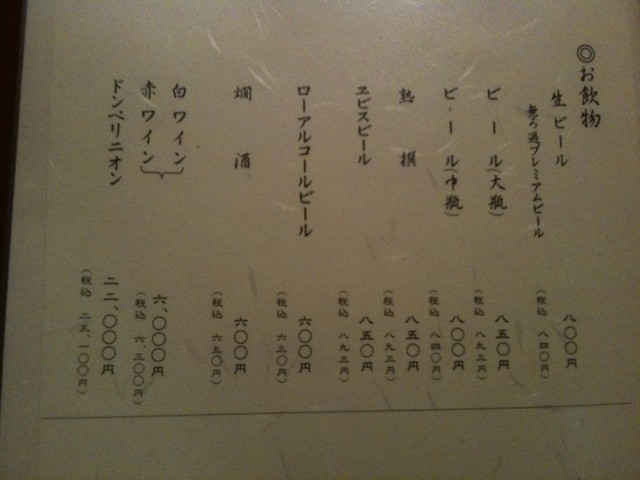 ◎お飲物
生ビール
無ろ過プレミアムビール
八〇〇円
(税込 八四〇円)
ビール(大瓶)
八五〇円
(税込 八九三円)
ビール(中瓶)
八〇〇円
(税込 八四〇円)
熟撰
八五〇円
(税込 八九三円)
ヱビスビール
八五〇円
(税込 八九三円)
ローアルコールビール
六〇〇円
(税込 六三〇円)
燗酒
六〇〇円
(税込 六三〇円)
白ワイン
赤ワイン
六、〇〇〇円
(税込 六、三〇〇円)
ドンペリニオン
二二、〇〇〇円
(税込 二三、一〇〇円)